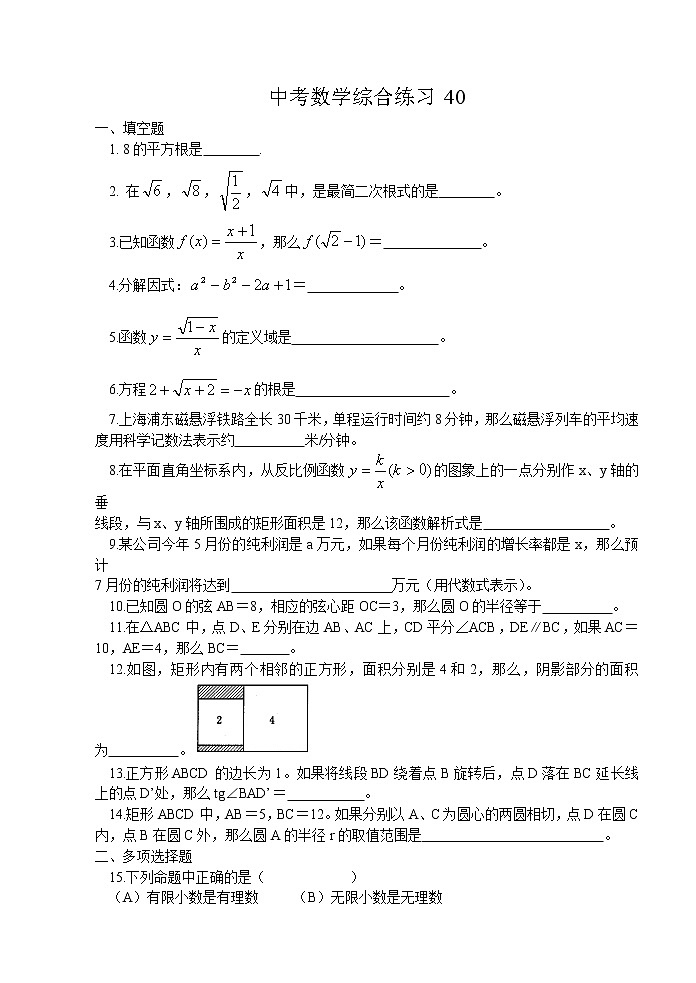 中考数学综合练习 40
一、填空题
1. 8的平方根是________.
2. 在√6，√8，√(1/2)，√4中，是最简二次根式的是________。
3.已知函数f(x)=(x+1)/x，那么f(√2-1)=______________。
4.分解因式：a²-b²-2a+1=_____________。
5.函数y=√(1-x)/x的定义域是_____________________。
6.方程2+√(x+2)=-x的根是______________________。
7.上海浦东磁悬浮铁路全长30千米，单程运行时间约8分钟，那么磁悬浮列车的平均速
度用科学记数法表示约__________米/分钟。
8.在平面直角坐标系内，从反比例函数y=k/x(k>0)的图象上的一点分别作x、y轴的
垂
线段，与x、y轴所围成的矩形面积是12，那么该函数解析式是__________________。
9.某公司今年5月份的纯利润是a万元，如果每个月份纯利润的增长率都是x，那么预
计
7月份的纯利润将达到_______________________万元（用代数式表示）。
10.已知圆O的弦AB＝8，相应的弦心距OC＝3，那么圆O的半径等于__________。
11.在△ABC中，点D、E分别在边AB、AC上，CD平分∠ACB，DE∥BC，如果AC＝
10，AE＝4，那么BC＝_______。
12.如图，矩形内有两个相邻的正方形，面积分别是4和2，那么，阴影部分的面积
2 4
为__________。
13.正方形ABCD的边长为1。如果将线段BD绕着点B旋转后，点D落在BC延长线
上的点D’处，那么tg∠BAD’＝___________。
14.矩形ABCD中，AB＝5，BC＝12。如果分别以A、C为圆心的两圆相切，点D在圆C
内，点B在圆C外，那么圆A的半径r的取值范围是__________________________。
二、多项选择题
15.下列命题中正确的是（ ）
（A）有限小数是有理数 （B）无限小数是无理数